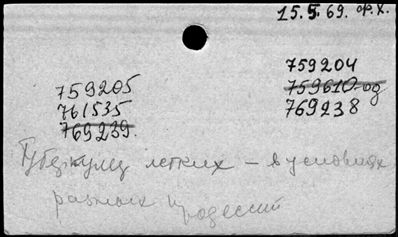 15.5.69. ор.х.
759205
761535
769239.
759204
759610-од
769238
Туберкулез легких – в условиях
разных профессий